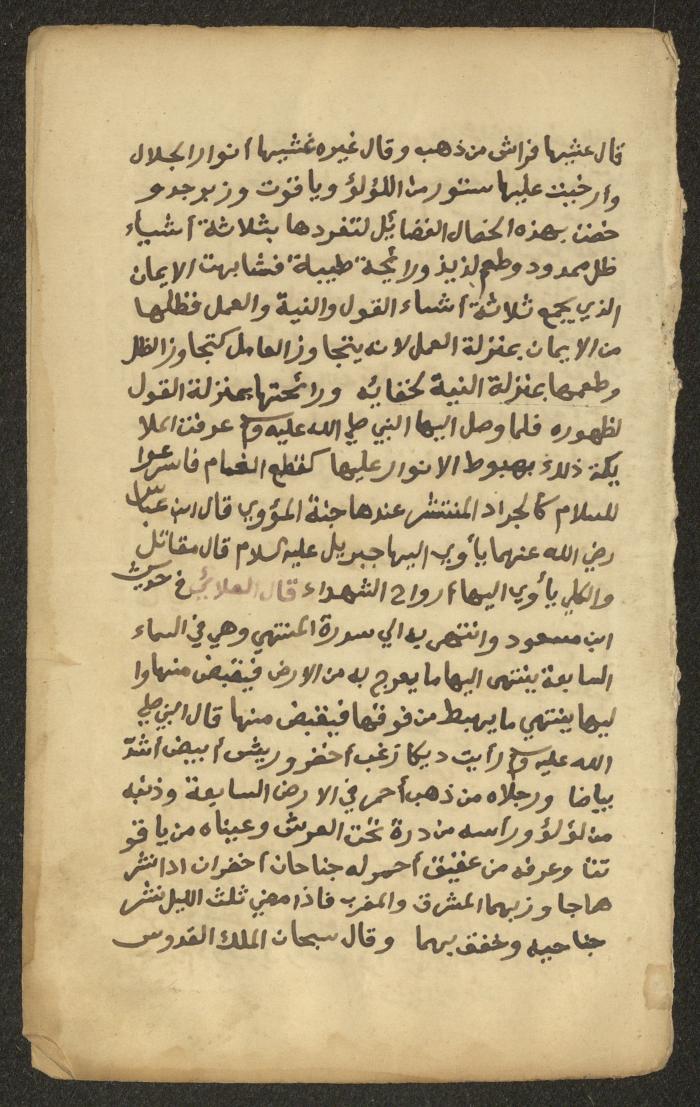 قال غشيها فراش من ذهب وقال غيره غشيها أنوار الجلال
وأرخيت عليها ستور من اللؤلؤ وياقوت وزبرجد و
خصت بهذه الخصال الفضائل لتفردها بثلاثة أشياء
ظل ممدود وطعم لذيذ ورائحة طيبة فشابهت الايمان
الذي يجمع ثلاثة أشياء القول والنية والعمل فظلها
من الايمان بمنزلة العمل لانه يتجاوز العامل كتجاوز الظل
وطعمها بمنزلة النية لخفائه ورائحتها بمنزلة القول
لظهوره فلما وصل اليها النبي صلي الله عليه وسلم عرفت الملا
يكة ذلك بهبوط الانوار عليها كقطع الغمام فاسرعوا
للسلام كالجراد المنتشر عندها جنة المؤوي قال ابن عباس
رضي الله عنهما يأوي اليها جبريل عليه السلام قال مقاتل
والكلبي يأوي اليها أرواح الشهداء قال العلائي في حديث
ابن مسعود وانتهى به الي سدرة المنتهي وهي في السماء
السابعة ينتهى اليها ما يعرج به من الارض فيقبض منها وا
ليها ينتهي ما يهبط من فوقها فيقبض منها قال النبي صلي
الله عليه وسلم رأيت ديكا زغب أخضر وريش أبيض أشد
بياضا ورجلاه من ذهب أحمر في الارض السابعة وذنبه
من لؤلؤ ورأسه من درة تحت العرش وعيناه من ياقو
تتا وعرفه من عقيق أحمر له جناحان أخضران اذا نشر
هما جاوز بهما المشرق والمغرب فاذا مضي ثلث الليل نشر
جناحيه وخفق بهما وقال سبحان الملك القدوس